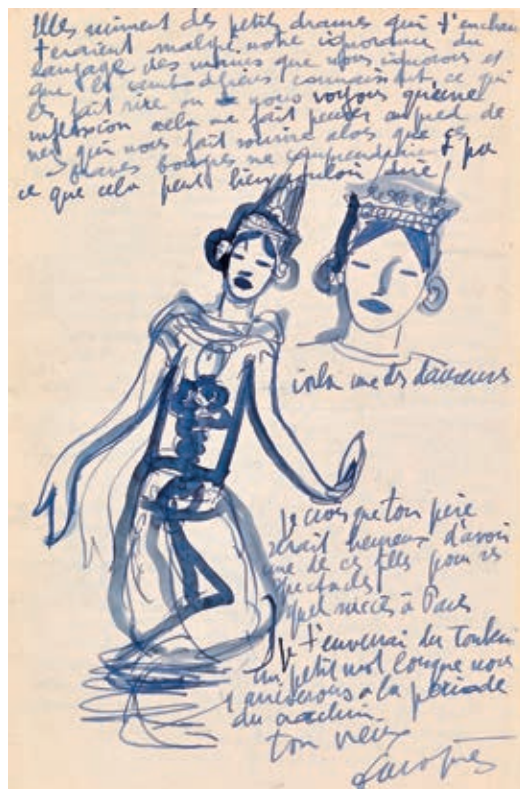 Elles miment des petits drames qui t'enchan
teraient malgré notre ignorance du
langage des mains que nous ignorons et
que les cambodgiens connaissent, ce qui
les fait rire ou nous voyons qu'une
inflexion cela me fait penser au pied de
nez qui nous fait sourire alors que ces
braves bougres ne comprendraient pas
ce que cela peut bien vouloir dire!
voilà une des danseuses
je crois que ton père
serait heureux d'avoir
une de ces filles pour ses
spectacles
quel succès à Paris
Je t'enverrai du Tonkin
un petit mot lorsque nous
y arriverons à la période
du crachin.
ton vieux